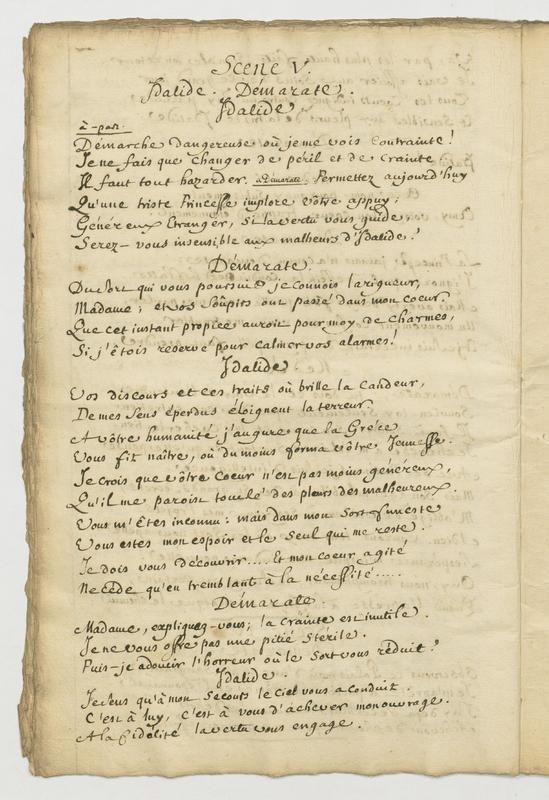 Scene V.
Idalide. Démarate.
Idalide
à-part.
Démarche dangereuse où je me vois contrainte!
Je ne fais que changer de péril et de crainte:
Il faut tout hazarder. à Démarate. Permettez aujourd'huy
Qu'une triste Princesse implore vôtre appuy;
Généreux Etranger, si la vertu vous guide,
Serez-vous insensible aux malheurs d'Idalide?
Démarate.
Du sort qui vous poursuit je connois la rigueur,
Madame; et vos soûpirs ont passé dans mon coeur.
Que cet instant propice auroit pour moy de charmes,
Si j'étois reservé pour calmer vos alarmes!
Idalide.
Vos discours et ces traits où brille la candeur,
De mes sens éperdus éloignent la terreur.
A vôtre humanité j'augure que la Grece
Vous fit naître, ou du moins forma vôtre Jeunesse.
Je crois que vôtre coeur n'est pas moins généreux,
Qu'il me paroist touché des pleurs des malheureux.
Vous m'êtes inconnu: mais dans mon sort funeste
Vous estes mon espoir et le seul qui me reste.
Je dois vous découvrir.... Et mon coeur agité
Ne cede qu'en tremblant à la nécessité.....
Démarate.
Madame, expliquez-vous; la crainte est inutile.
Je ne vous offre pas une pitié stérile.
Puis-je adoucir l'horreur où le sort vous réduit?
Idalide.
Je sens qu'à mon secours le Ciel vous a conduit.
C'est à luy, c'est à vous d'achever mon ouvrage.
A la fidélité la vertu vous engage.